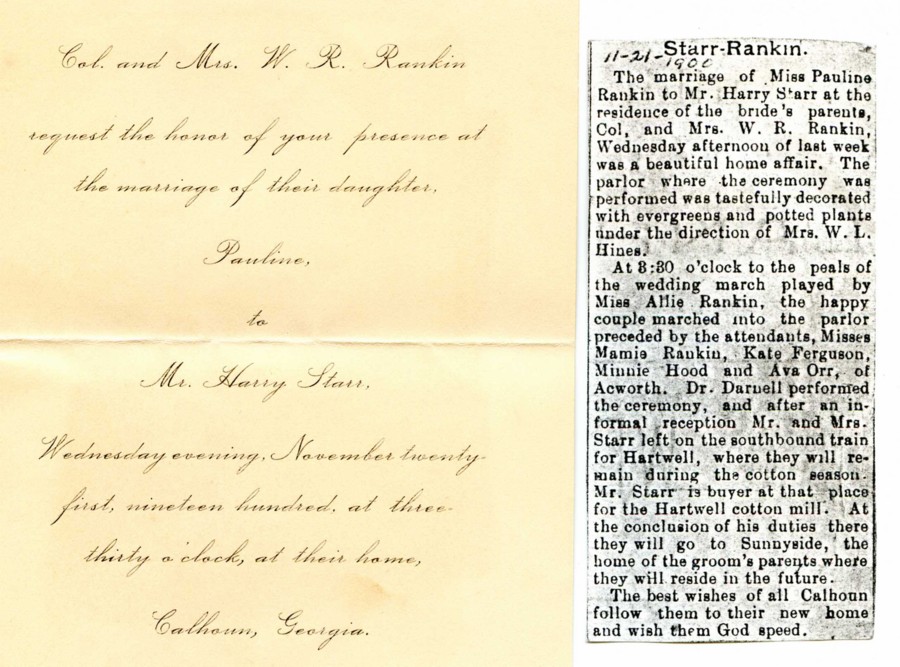 Col. and Mrs. W. R. Rankin
request the honor of your presence at
the marriage of their daughter,
Pauline,
to
Mr. Harry Starr,
Wednesday evening, November twenty-
first, nineteen hundred, at three-
thirty o'clock, at their home,
Calhoun, Georgia.
Starr-Rankin.
11-21-1900
The marriage of Miss Pauline
Rankin to Mr. Harry Starr at the
residence of the bride's parents,
Col, and Mrs. W. R. Rankin,
Wednesday afternoon of last week
was a beautiful home affair. The
parlor where the ceremony was
performed was tastefully decorated
with evergreens and potted plants
under the direction of Mrs. W. L.
Hines.
At 3:30 o'clock to the peals of
the wedding march played by
Miss Allie Rankin, the happy
couple marched into the parlor
preceded by the attendants, Misses
Mamie Rankin, Kate Ferguson,
Minnie Hood and Ava Orr, of
Acworth. Dr. Darnell performed
the ceremony, and after an in-
formal reception Mr. and Mrs.
Starr left on the southbound train
for Hartwell, where they will re-
main during the cotton season.
Mr. Starr is buyer at that place
for the Hartwell cotton mill. At
the conclusion of his duties there
they will go to Sunnyside, the
home of the groom's parents where
they will reside in the future.
The best wishes of all Calhoun
follow them to their new home
and wish them God speed.